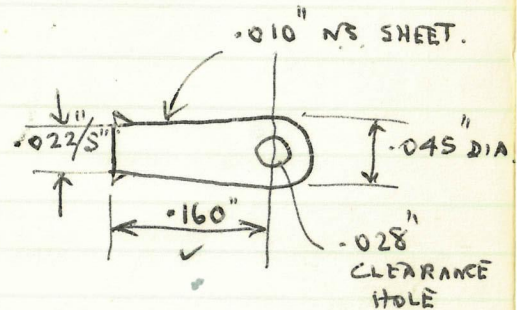 .010" NS SHEET.
.022/5"
.045" DIA.
.160"
.028"
CLEARANCE
HOLE